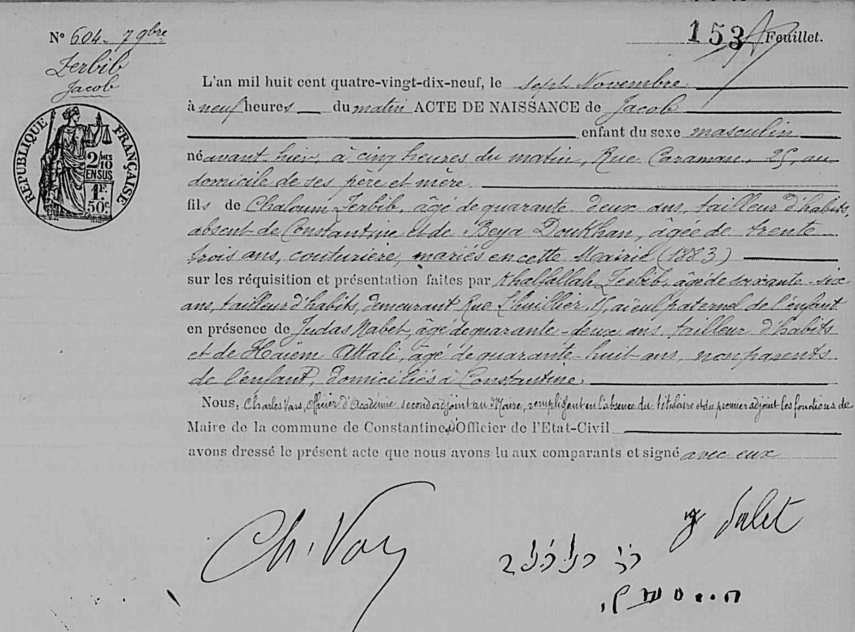 N° 604. 7 9bre
153 Feuillet.
Zerbib
Jacob
RÉPUBLIQUE FRANÇAISE
2/10 MES EN SUS
1F. 50c
L'an mil huit cent quatre-vingt-dix-neuf, le sept Novembre
à neuf heures du matin ACTE DE NAISSANCE de Jacob
enfant du sexe masculin
né avant hier, à cinq heures du matin, Rue Caraman, 25, au
domicile de ses père et mère
fils de Chaloum Zerbib, âgé de quarante deux ans, tailleur d'habits,
absent de Constantine et de Beya Doukhan, agée de trente
trois ans, couturière, mariés en cette Mairie (1883)
sur les réquisition et présentation faites par Khalfallah Zerbib, âgé de soixante-six
ans, tailleur d'habits, demeurant Rue Lhuillier, aïeul paternel de l'enfant
en présence de Judas Nabet, âgé de quarante-deux ans, tailleur d'habits
et de Haïem Attali, âgé de quarante-huit ans, non parents
de l'enfant, domiciliés à Constantine
Nous, Charles Vars, officier d'Académie second adjoint au Maire, remplissant en l'absence du titulaire et du premier adjoint les fonctions de
Maire de la commune de Constantine, Officier de l'Etat-Civil
avons dressé le présent acte que nous avons lu aux comparants et signé avec eux
Ch. Vars